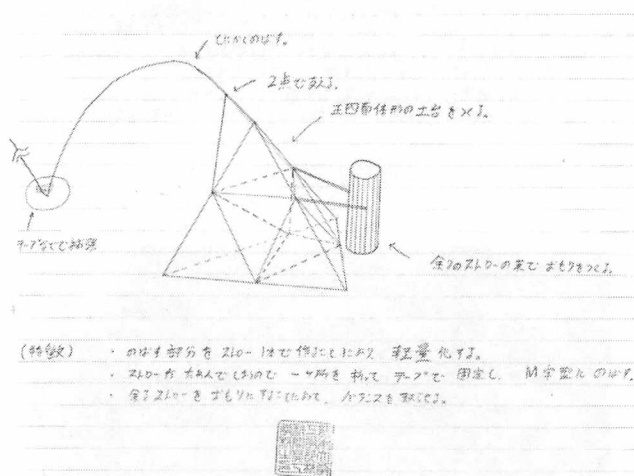 ながくのばす。
2点で支える。
正四面体形の土台をつくる。
テープなどで補強
余りのストローの束でおもりをつくる。
(特徴)
・のばす部分をストロー1本で作ることにより 軽量化する。
・ストローがたわんでしまうので 一ヶ所を折って テープで 固定し、M字型に のばす。
・余るストローをおもりにすることによって、バランスを取らせる。